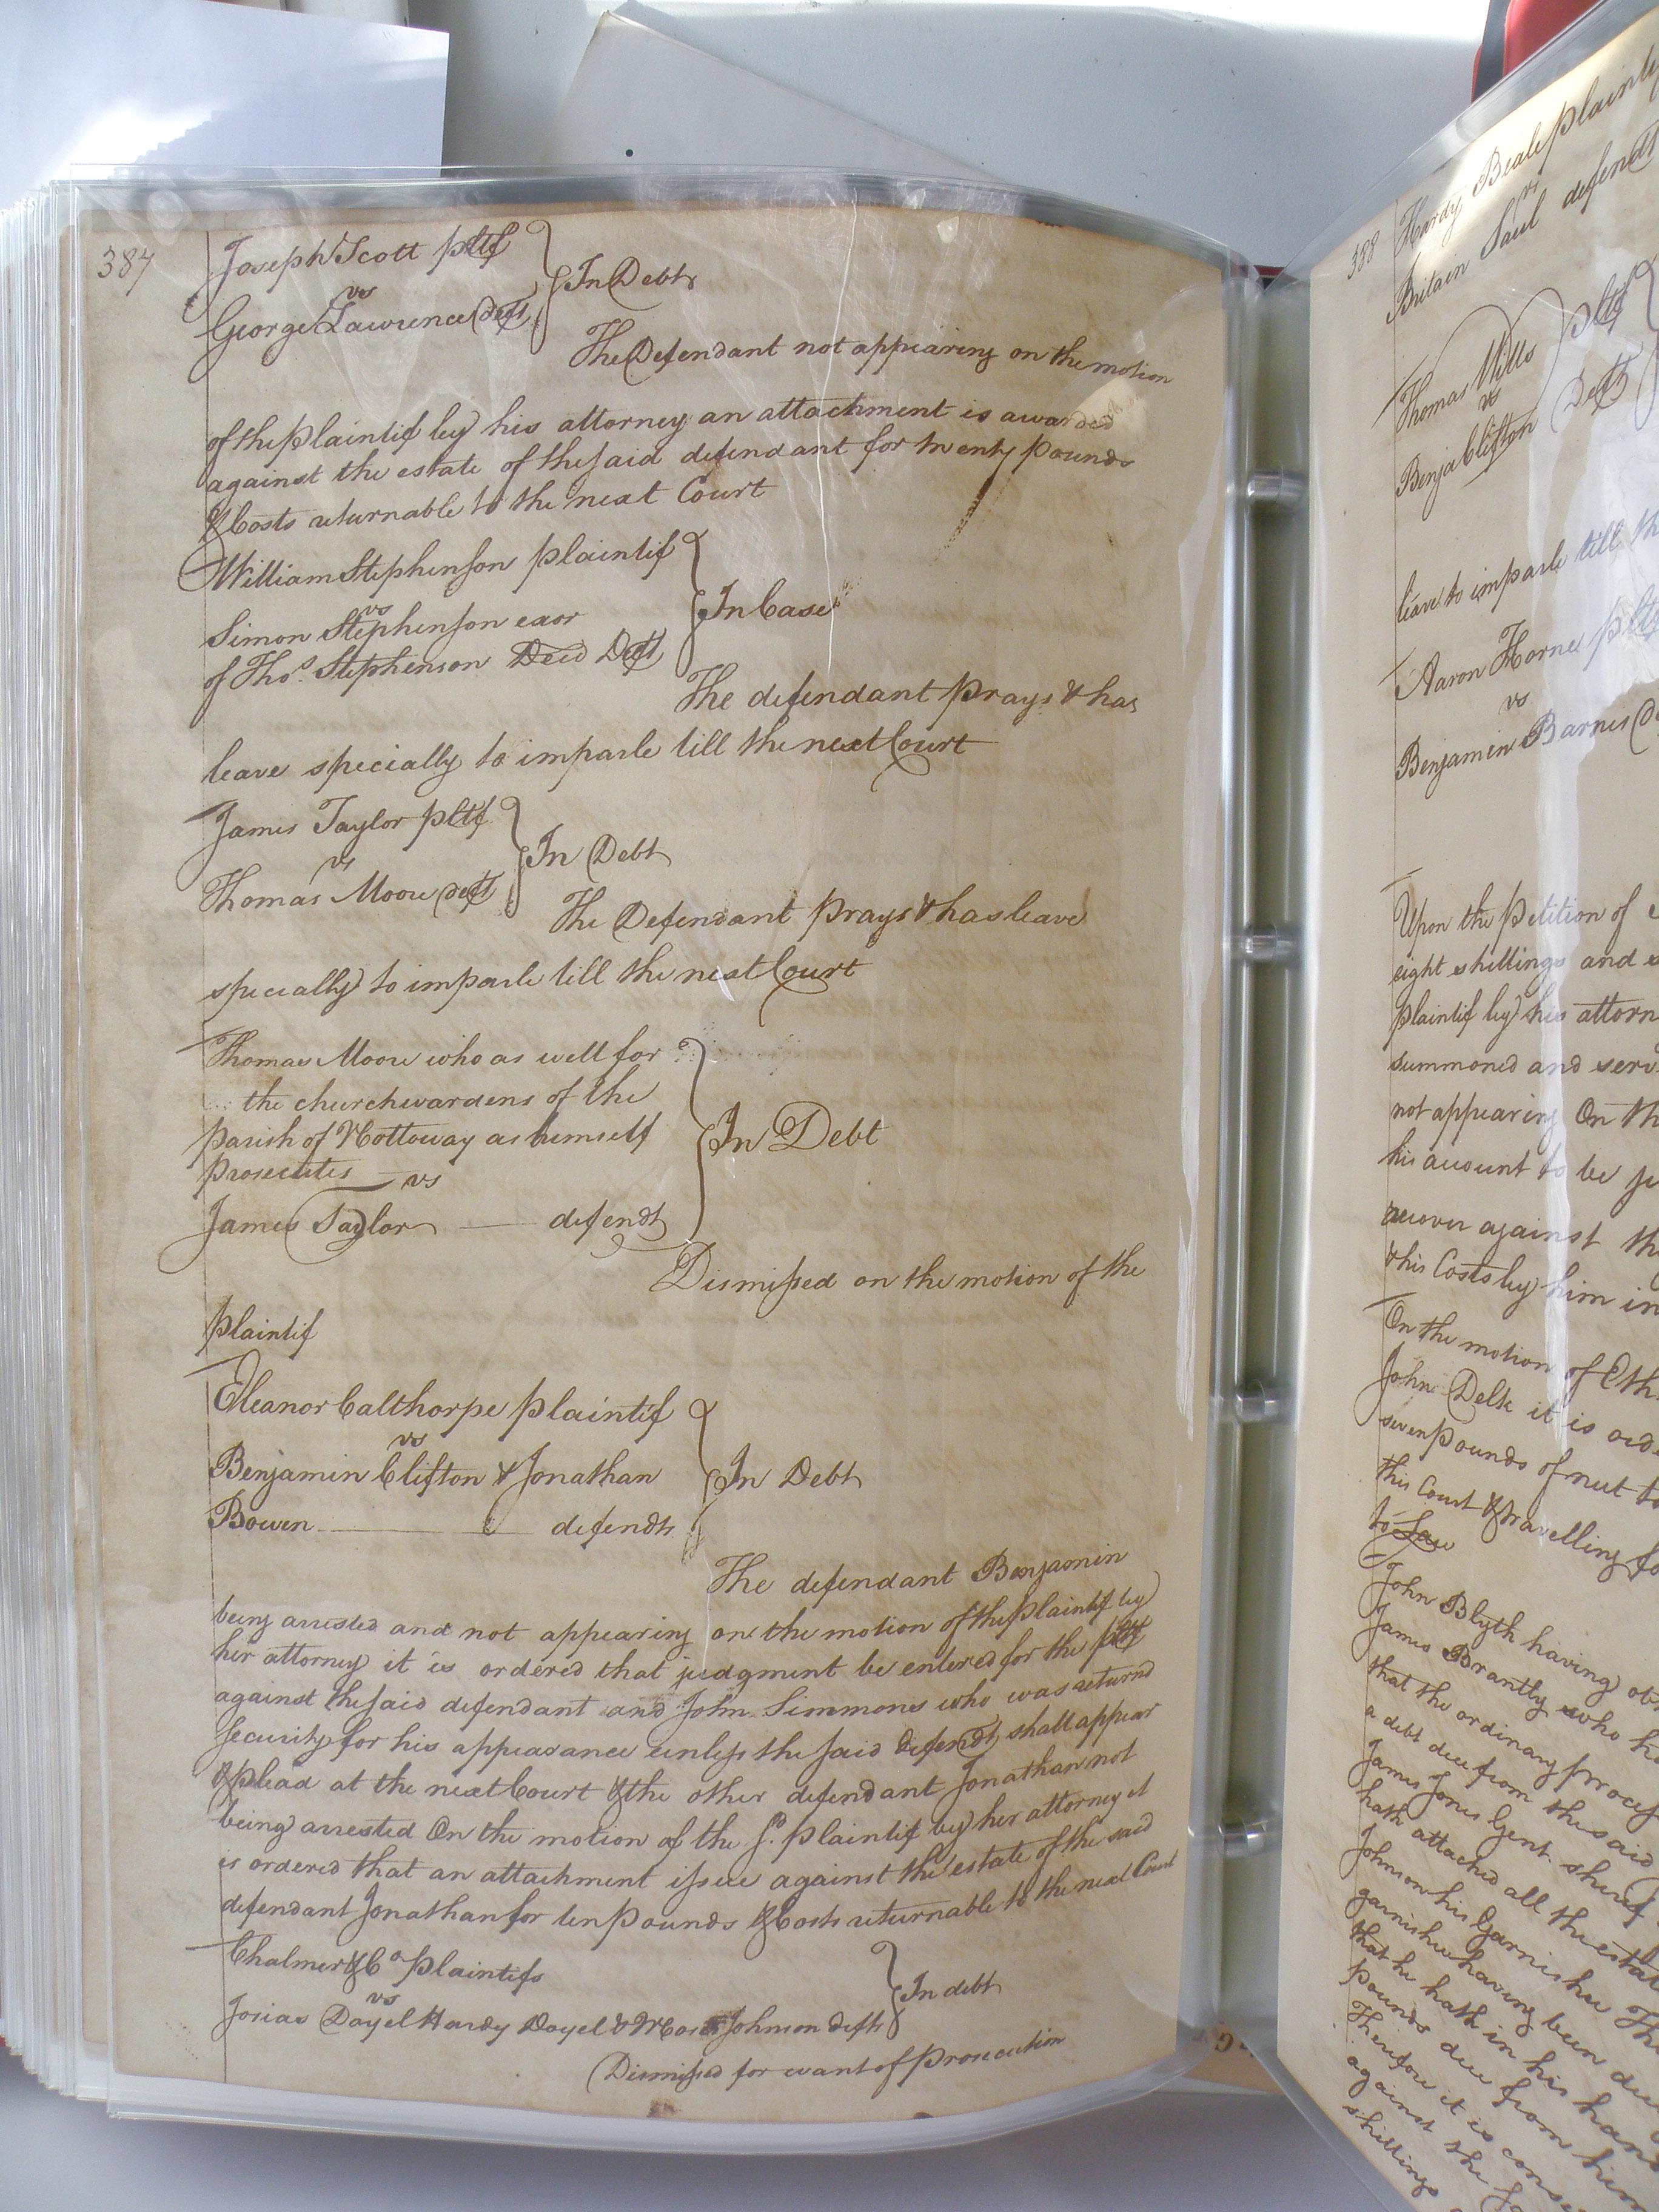 387
Joseph Scott pltf
vs
George Lawrence deft
In Debt
The Defendant not appearing on the motion
of the plaintif by his attorney an attachment is awarded
against the estate of the said defendant for twenty pounds
& Costs returnable to the next Court
William Stephenson plaintif
vs
Simon Stephenson exor
of Thos. Stephenson Decd Deft
In Case
The defendant prays & has
leave specially to imparle till the next Court
James Taylor pltf
vs
Thomas Moore deft
In Debt
The Defendant prays & has leave
specially to imparle till the next Court
Thomas Moore who as well for
the churchwardens of the
parish of Nottoway as himself
prosecutes vs
James Taylor defendt
In Debt
Dismissed on the motion of the
plaintif
Eleanor Calthorpe plaintif
vs
Benjamin Clifton & Jonathan
Bowen defendts
In Debt
The defendant Benjamin
being arrested and not appearing on the motion of the plaintif by
her attorney it is ordered that judgment be entered for the pltf
against the said defendant and John Simmons who was returnd
security for his appearance unless the said defendt shall appear
& plead at the next Court & the other defendant Jonathan not
being arrested On the motion of the sd. plaintif by her attorney it
is ordered that an attachment issue against the estate of the said
defendant Jonathan for ten pounds & Costs returnable to the next Court
Chalmer & Co plaintifs
vs
Josias Doyel Hardy Doyel & Johnson defts
In debt
Dismissed for want of prosecution
388
Hardy Beale plaintif
vs
Britain Saul defendt
Thomas Wills pltf
vs
Benja Clifton Deft
leave to imparle till th
Aaron Horne pltf
vs
Benjamin Barnes de
Upon the petition of
eight shillings and
plaintif by his attorn
summoned and serv
not appearing On th
his account to be ju
recover against th
& his Costs by him in
On the motion of Eth
John Delk it is orde
seven pounds of nett to
this Court & travelling fo
to Law
John Blyth having ob
James Brantly who ha
that the ordinary process
a debt due from the said
James Jones Gent. sherif
hath attached all the estat
Johnson his Garnishee Th
garnishee having been du
that he hath in his hand
pounds due from him
Therefore it is cons
against the
shillings